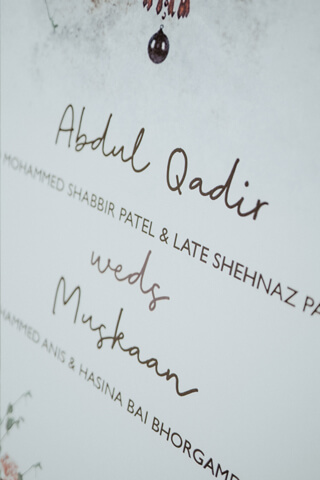 Abdul Qadir
MOHAMMED SHABBIR PATEL & LATE SHEHNAZ PA
weds
Muskaan
HAMMED ANIS & HASINA BAI BHORGAME